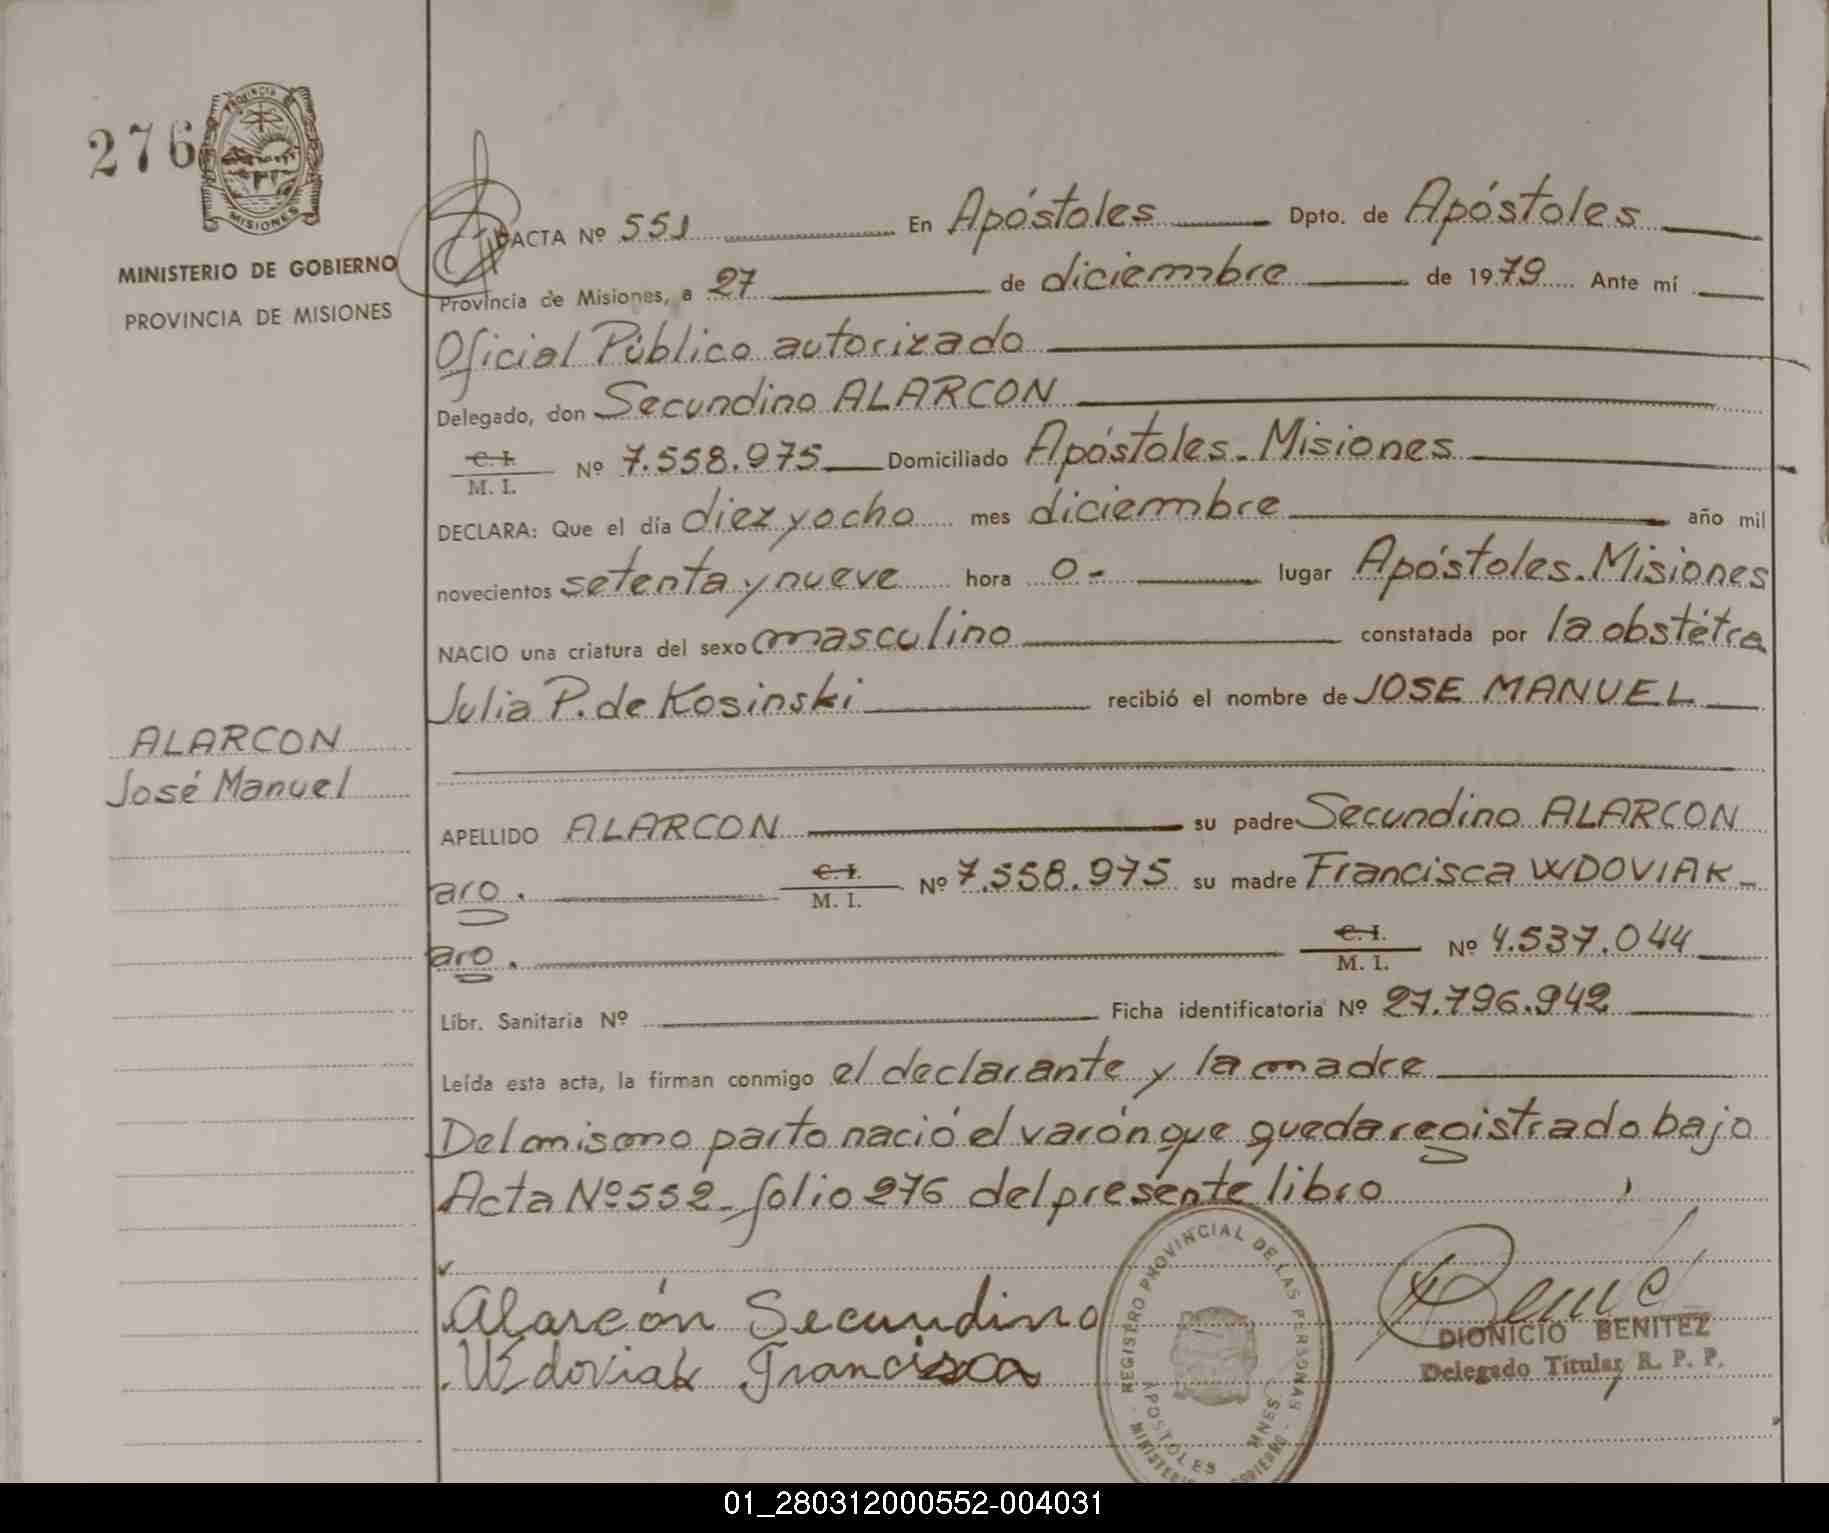 276
PROVINCIA DE
MISIONES
MINISTERIO DE GOBIERNO
PROVINCIA DE MISIONES
ACTA Nº 551 En Apóstoles Dpto. de Apóstoles
Provincia de Misiones, a 27 de diciembre de 1979 Ante mí
Oficial Público autorizado
Delegado, don Secundino ALARCON
C. I.
M. I. Nº 7.558.975 Domiciliado Apóstoles. Misiones
DECLARA: Que el día diez y ocho mes diciembre año mil
novecientos setenta y nueve hora 0- lugar Apóstoles. Misiones
NACIO una criatura del sexo masculino constatada por la obstétra
Julia P. de Kosinski recibió el nombre de JOSE MANUEL
ALARCON
José Manuel
APELLIDO ALARCON su padre Secundino ALARCON
aro. C. I.
M. I. Nº 7.558.975 su madre Francisca WDOVIAK-
aro. C. I.
M. I. Nº 4.537.044
Libr. Sanitaria Nº Ficha identificatoria Nº 27.796.942
Leída esta acta, la firman conmigo el declarante y la madre
Del mismo parto nació el varón que queda registrado bajo
Acta Nº 552- folio 276 del presente libro
Alarcón Secundino
Wdoviak Francisca
REGISTRO PROVINCIAL DE LAS PERSONAS
APOSTOLES MNES
DIONICIO BENITEZ
Delegado Titular R. P. P.
01_280312000552-004031